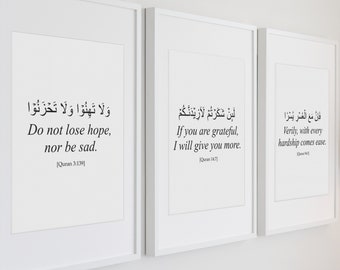 وَلَا تَهِنُوْا وَلَا تَحْزَنُوْا
Do not lose hope,
nor be sad.
[Quran 3:139]
لَئِنْ شَكَرْتُمْ لَأَزِيْدَنَّكُمْ
If you are grateful,
I will give you more.
[Quran 14:7]
فَاِنَّ مَعَ الْعُسْرِ يُسْرًا
Verily, with every
hardship comes ease.